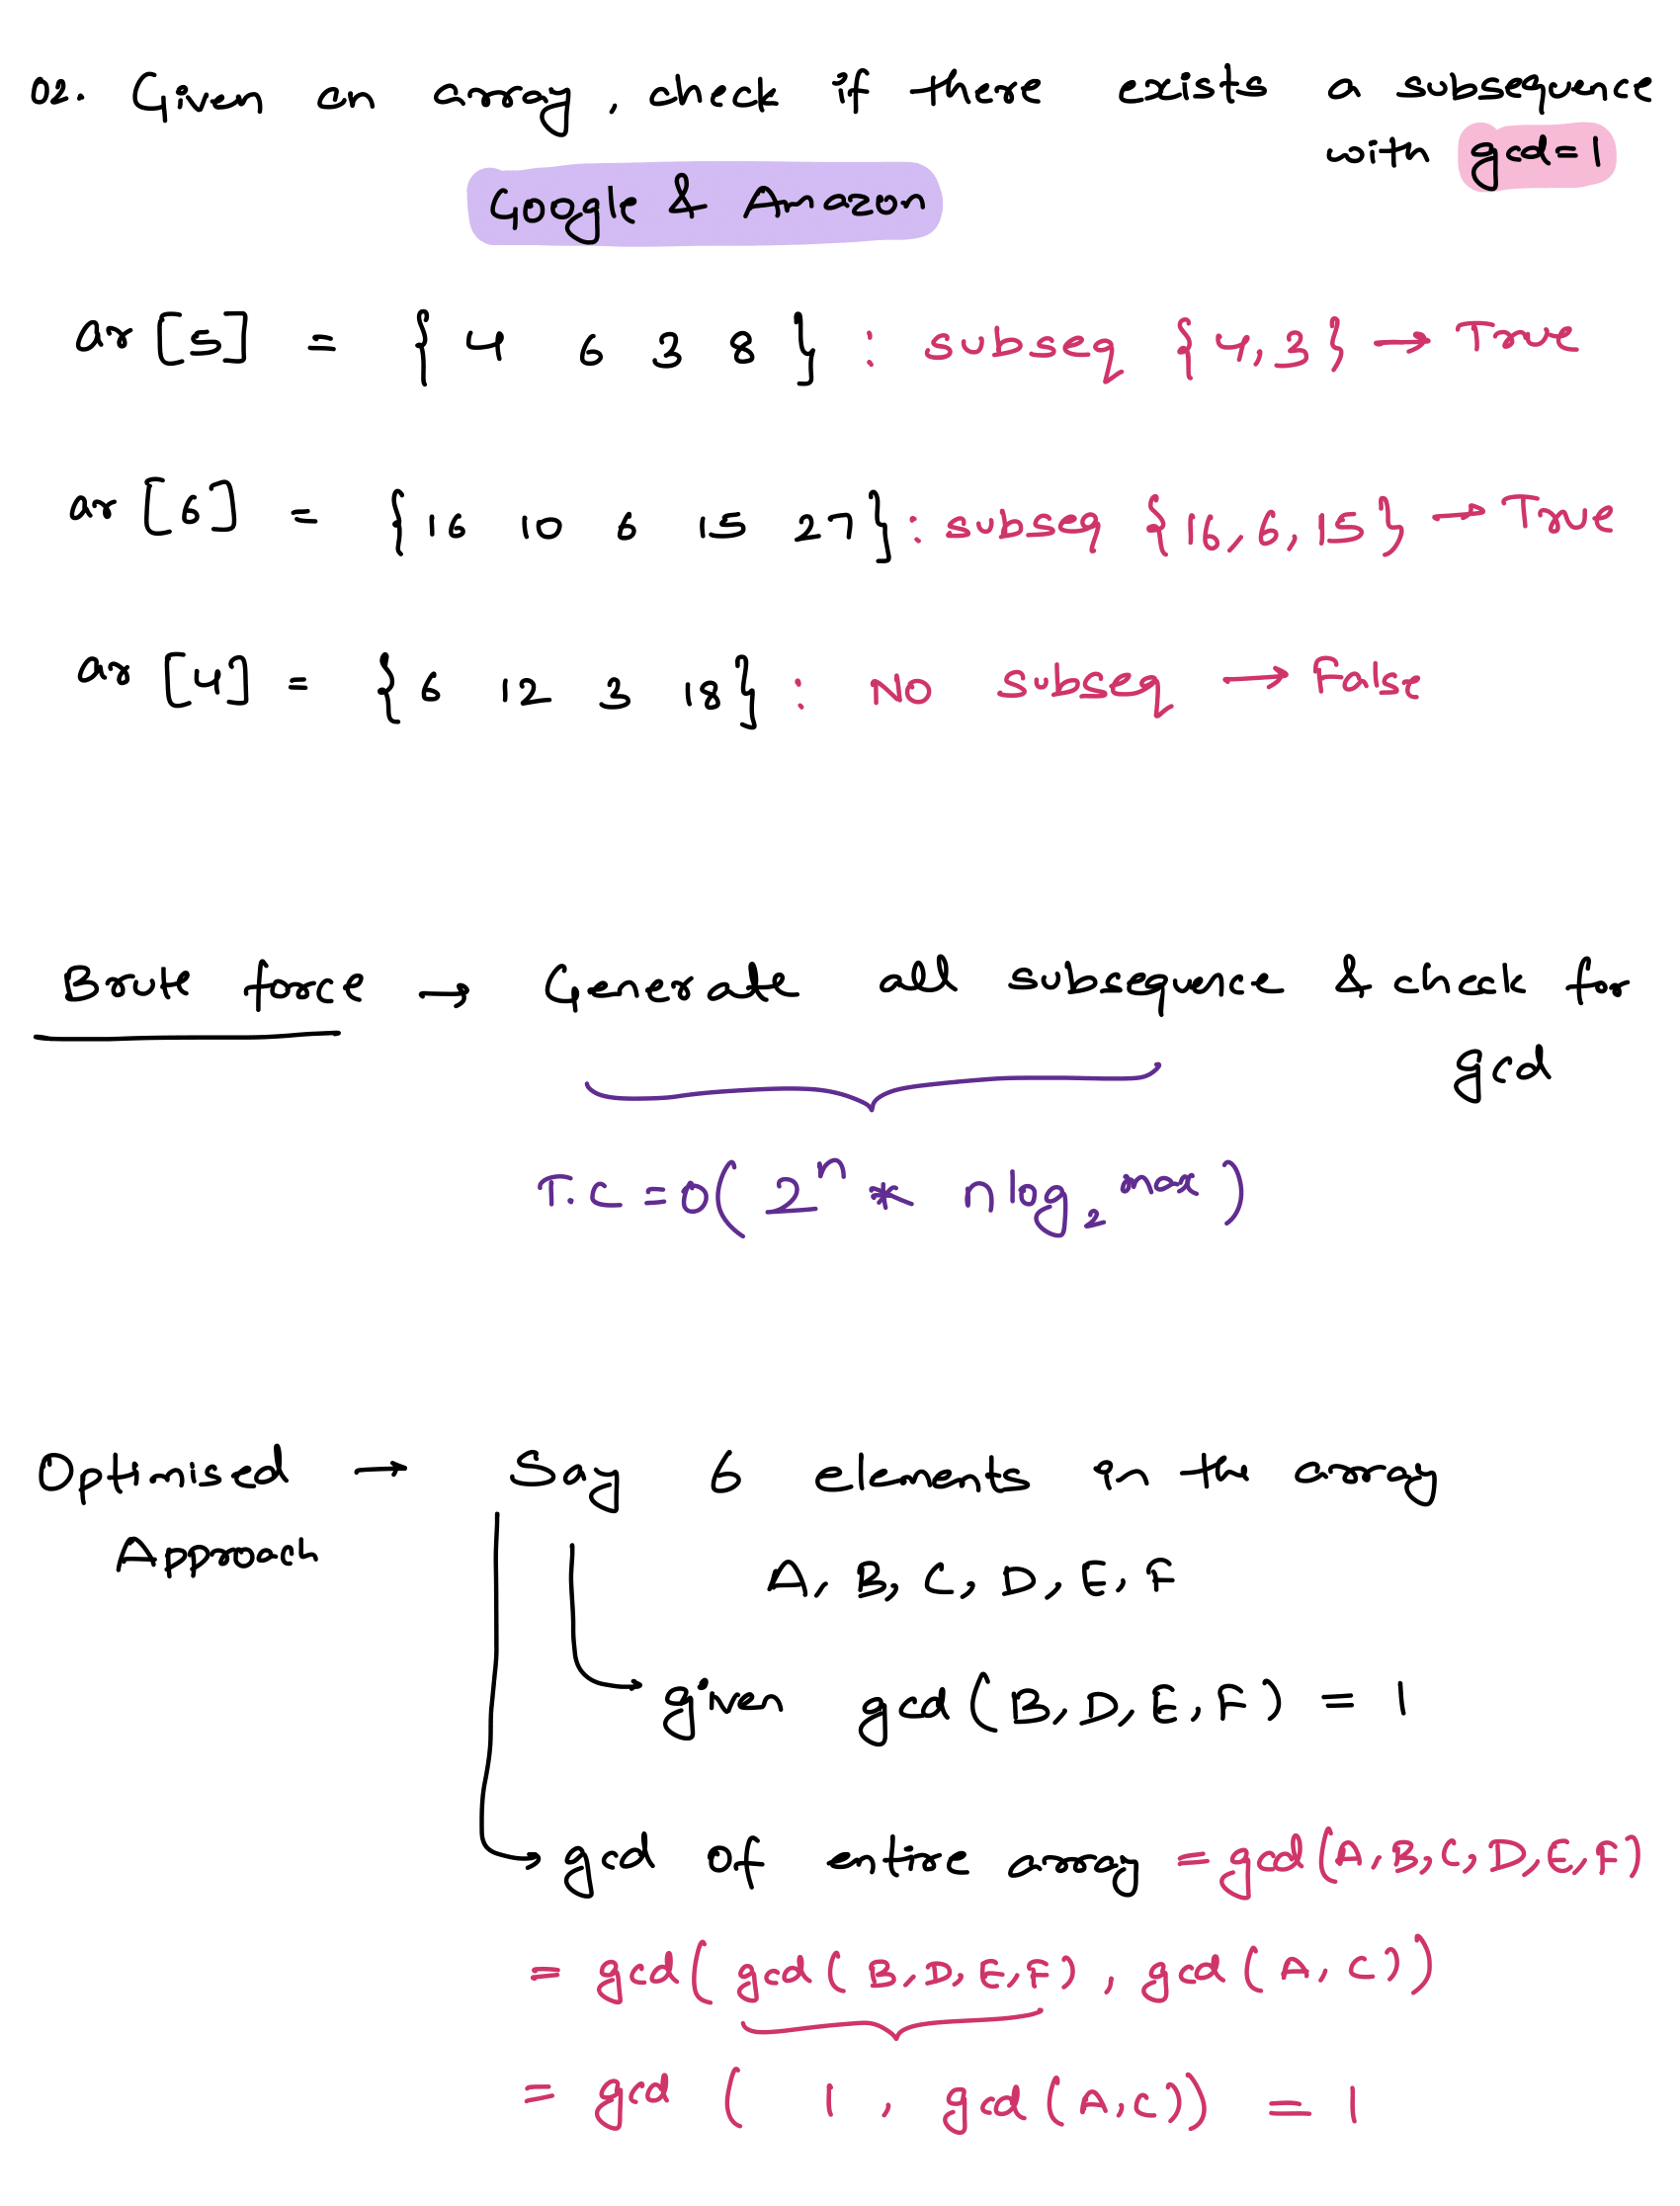 02. Given an array, check if there exists a subsequence
with gcd=1
Google & Amazon
ar[5] = { 4 6 3 8 } : subseq {4,3} → True
ar[6] = {16 10 6 15 27} : subseq {16,6,15} → True
ar[4] = {6 12 3 18} : NO subseq → False
Brute force → Generate all subsequence & check for
gcd
T.C = O( 2^n * n log₂ max )
Optimised → Say 6 elements in the array
Approach
A, B, C, D, E, F
given gcd(B,D,E,F) = 1
gcd of entire array = gcd(A,B,C,D,E,F)
= gcd( gcd( B,D,E,F) , gcd(A, C))
= gcd ( 1 , gcd(A,C)) = 1